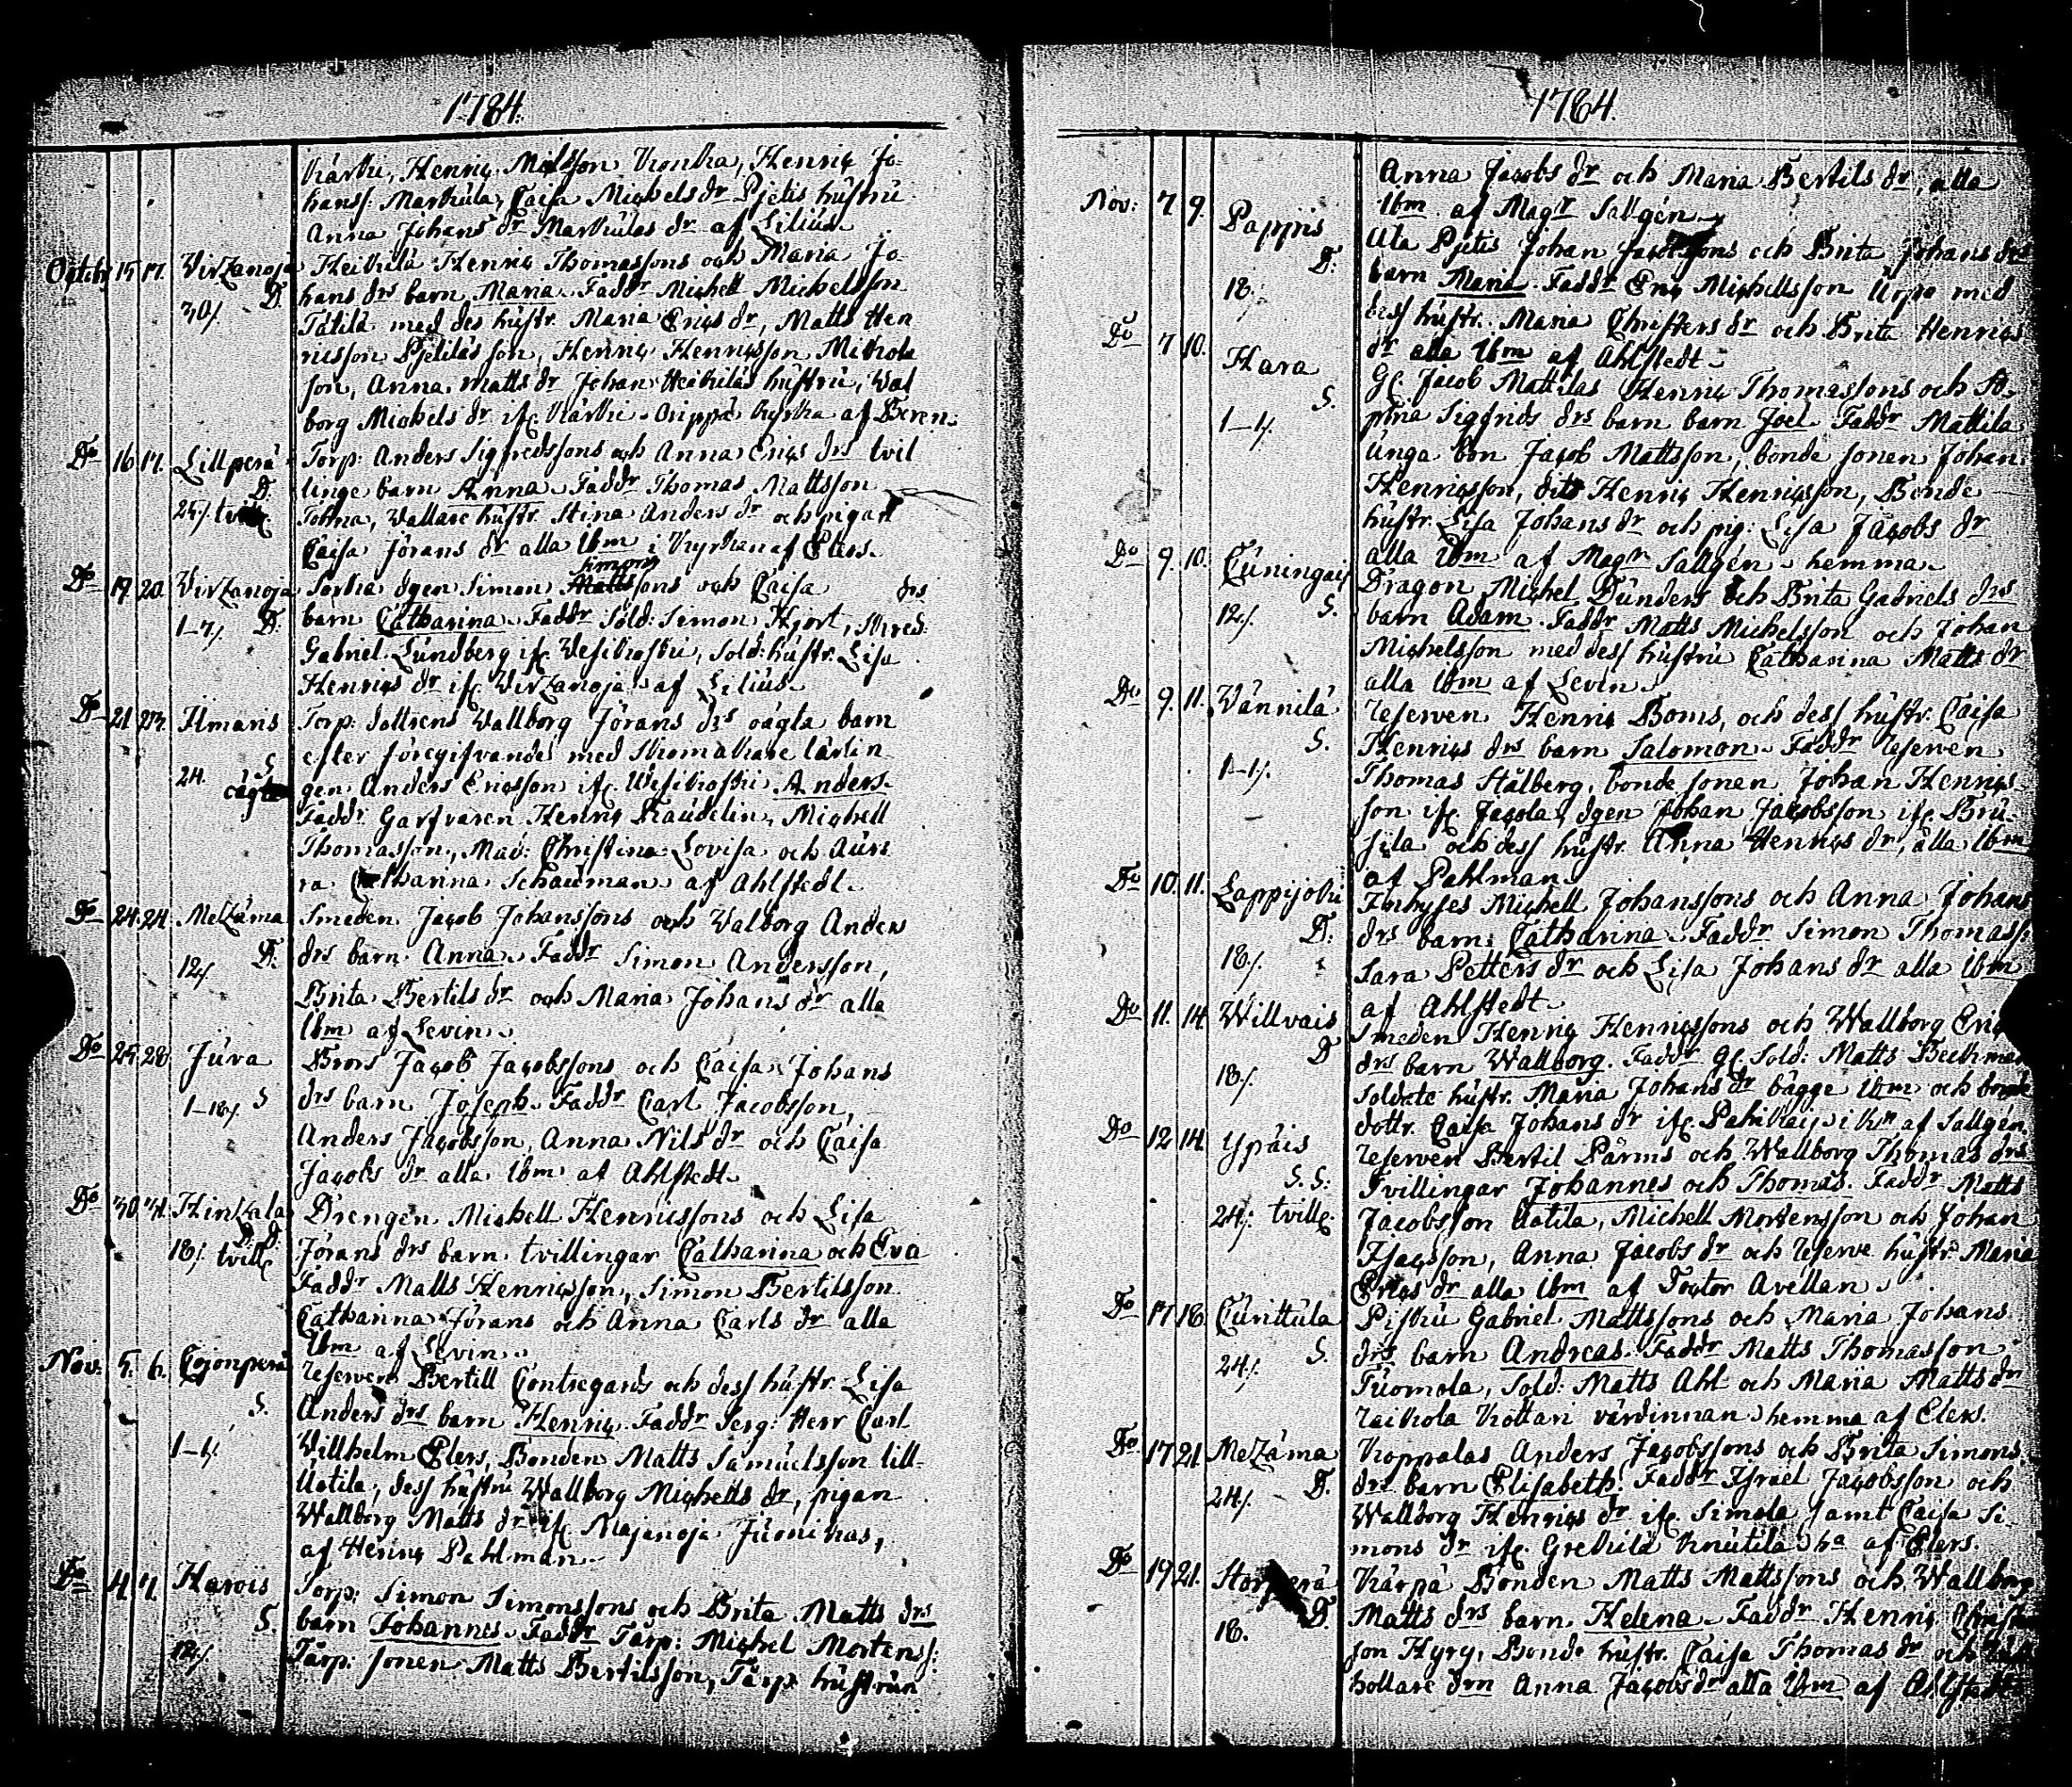 1784.
Kärki, Henric Nilsson Kontka, Henric Jo-
hanss: Markula, Caisa Michels dr Pjetis hustru
Anna Johans dr Markulas dr af Lilius.
Octob 15 17. Virzanoja Heikilä Henric Thomassons och Maria Jo-
30/. D. hans drs barn Maria. Faddr Michell Michelsson
Tätilä med des hustr. Maria Erics dr, Matts Hen
ricsson Pjetiläs son, Henric Henricsson Mikola
son, Anna Matts dr Johan Heikiläs hustru, Wal
borg Michels dr if. Kärki af Beren:
Do 16 17. Lillperä Torp: Anders Sigfredssons och Anna Erics drs tvil
D. linge barn Anna. Faddr Thomas Mattsson
24/. tvill. Wallare hustr. Stina Anders dr och pigan
Caisa Jörans dr alla Ibm i Kyrkan af Elers.
Simons
Do 19. 20. Virzanoja Sorka dgen Simon Mattssons och Caisa drs
1-7/. D: barn Catharina. Faddr Sold: Simon Hjort,
Gabriel Lundberg if. Vesikoski, Sold: hustr. Lisa
Henrics dr if. Virzanoja af Lilius.
Do 21. 23. Ilmaris Torp: dottrens Wallborg Jörans drs oägta barn
S efter föregifvande med Skomakare lärlin
24. oägta gen Anders Ericsson if. Vesikoski Anders.
Faddr Garfvaren Henric Maj: Michell
Thomasson, Mad: Christina Lovisa och Auro
ra Catharina Schauman af Ahlstedt.
Do 24. 24. Melzäma Smeden Jacob Johanssons och Walborg Anders
12/. D. drs barn Anna. Faddr Simon Andersson,
Brita Bertils dr och Maria Johans dr alla
Ibm af Levin.
Do 25 28 Juva Brors Jacob Jacobssons och Caisa Johans
1-18/. S drs barn Joseph. Faddr Carl Jacobsson,
Anders Jacobsson, Anna Nils dr och Caisa
Jacobs dr alla Ibm af Ahlstedt.
Do 30. 31. Hinzala Drengen Michell Henricssons och Lisa
D. D.
18/. tvill Jörans drs barn tvillingar Catharina och Eva
Faddr Matts Henricsson, Simon Bertilsson
Catharina Jörans och Anna Carls dr alla
Ibm af Levin.
Nov: 5. 6. Cojonperä Reserven Bertill Contregards och dess hustr. Lisa
S. Anders drs barn Henric. Faddr Serg: Herr Carl
1-6/. Willhelm Elers, Bonden Matts Samuelsson lill-
Uotila, dess hustru Wallborg Michells dr, pigan
Wallborg Matts dr if. Majanoja
af Henric Pahlman.
Do 4 7. Harois Torp: Simon Simonssons och Brita Matts drs
S. barn Johannes. Faddr Torp: Michel Mortenss:
12/. Torp: sonen Matts Bertilsson, Torp: hustrun
1784.
Anna Jacobs dr och Maria Bertils dr, alla
Ibm af Magr Sallgén.
Nov: 7 9. Pappis Ala Pjetis Johan Jacobssons och Brita Johans drs
D: barn Maria. Faddr Eric Michellsson Urpo med
18/. dess hustr. Maria Christers dr och Brita Henrics
dr alla Ibm af Ahlstedt.
Do 7 10. Hara Gl. Jacob Mattilas Henric Thomassons och So-
S.
1-4/. phia Sigfrids drs barn barn Joel. Faddr Mattila
unga bon Jacob Mattsson, bonde sonen Johan
Henricsson, dito Henric Henricsson, Bonde
hustr. Lisa Johans dr och pig: Lisa Jacobs dr
alla Ibm af Magr Sallgén hemma.
Do 9. 10. Cuningais Dragon Michel Dunders och Brita Gabriels drs
12/. S. barn Adam. Faddr Matts Michelsson och Johan
Michelsson med dess hustru Catharina Matts dr
alla Ibm af Levin.
Do 9. 11. Wännilä Reserven Henric Boms, och dess hustr. Caisa
S. Henrics drs barn Salomon. Faddr Reserven
1-1/. Thomas Stålberg, bonde sonen Johan Henrics
son if. Jacola, dgen Johan Jacobsson if. Bru-
sila och dess hustr. Anna Henrics dr, alla Ibm
af Pahlman.
Do 10. 11. Lappijoki Inhyses Michell Johanssons och Anna Johans
D: drs barn Catharina. Faddr Simon Thomass:
18/. Sara Petters dr och Lisa Johans dr alla Ibm
af Ahlstedt.
Do 11. 14. Willvais Smeden Henric Henricssons och Wallborg Erics
D drs barn Wallborg. Faddr Gl. Sold: Matts Beckman
18/. Soldate hustr. Maria Johans dr bägge Ibm och bonde
dottr. Caisa Johans dr if. Pahikais i Kn af Sallgén.
Do 12 14. Ypäis Reserven Bertil Pärms och Wallborg Thomas drs
S. S: Tvillingar Johannes och Thomas. Faddr Matts
24/. tvill. Jacobsson Uotila, Michell Mortensson och Johan
Isacsson, Anna Jacobs dr och Reserve hustr. Maria
Erics dr alla Ibm af Doctor Avellan.
Do 17 18. Curittula Piskú Gabriel Mattssons och Maria Johans
24/. S. drs barn Andreas. Faddr Matts Thomasson
Tuomola, Sold: Matts Ahl och Maria Matts dr
Raikola Kottari värdinnan hemma af Elers.
Do 17 21. Melzäma Koppalas Anders Jacobssons och Brita Simons
24/. D. drs barn Elisabeth. Faddr Israel Jacobsson och
Wallborg Henrics dr if. Simola samt Caisa Si-
mons dr if. Grekilä Knutila ha af Elers.
Do 19 21. Storperä Kärpä Bonden Matts Mattssons och Wallborg
18. D. Matts drs barn Helena. Faddr Henric Christers
son Hyry, Bonde hustr. Caisa Thomas dr och
hollare drn Anna Jacobs dr alla Ibm af Ahlstedt